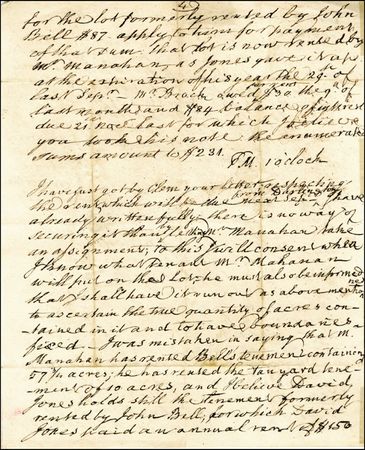 4
for the lot formerly rented by John
Bell $87 apply to him for payment
of that sum. that lot is now rented by
Mr. Manahan, as Jones gave it up
at the expiration of his year the 29. of
last Sepr. Mr. Brack $30 the 9. of
last month, and $84 balance of
due 21 last for which I believe
you took his note the enumerated
sums amount to $231.
P.M. o'clock
I have just got by Clem your letter respecting
the rent which will be due next Sepr. I have
already written fully, there is no way of
securing it than let Mr. Manahan take
an assignment, to this I will consent when
I know what Mr. Mahanan
will put on the lot, he must also be informed
that I shall have it run out as above mentioned
to ascertain the true quantity of acres con-
tained in it and to have boundaries
fixed. I was mistaken in saying that M.
Manahan has rented Bells tenement containing
57 1/2 acres, he has rented the tan yard tene-
ment of 10 acres, and I believe David
Jones holds still the tenement formerly
rented by John Bell, for which David
Jones paid an annual rent of $150